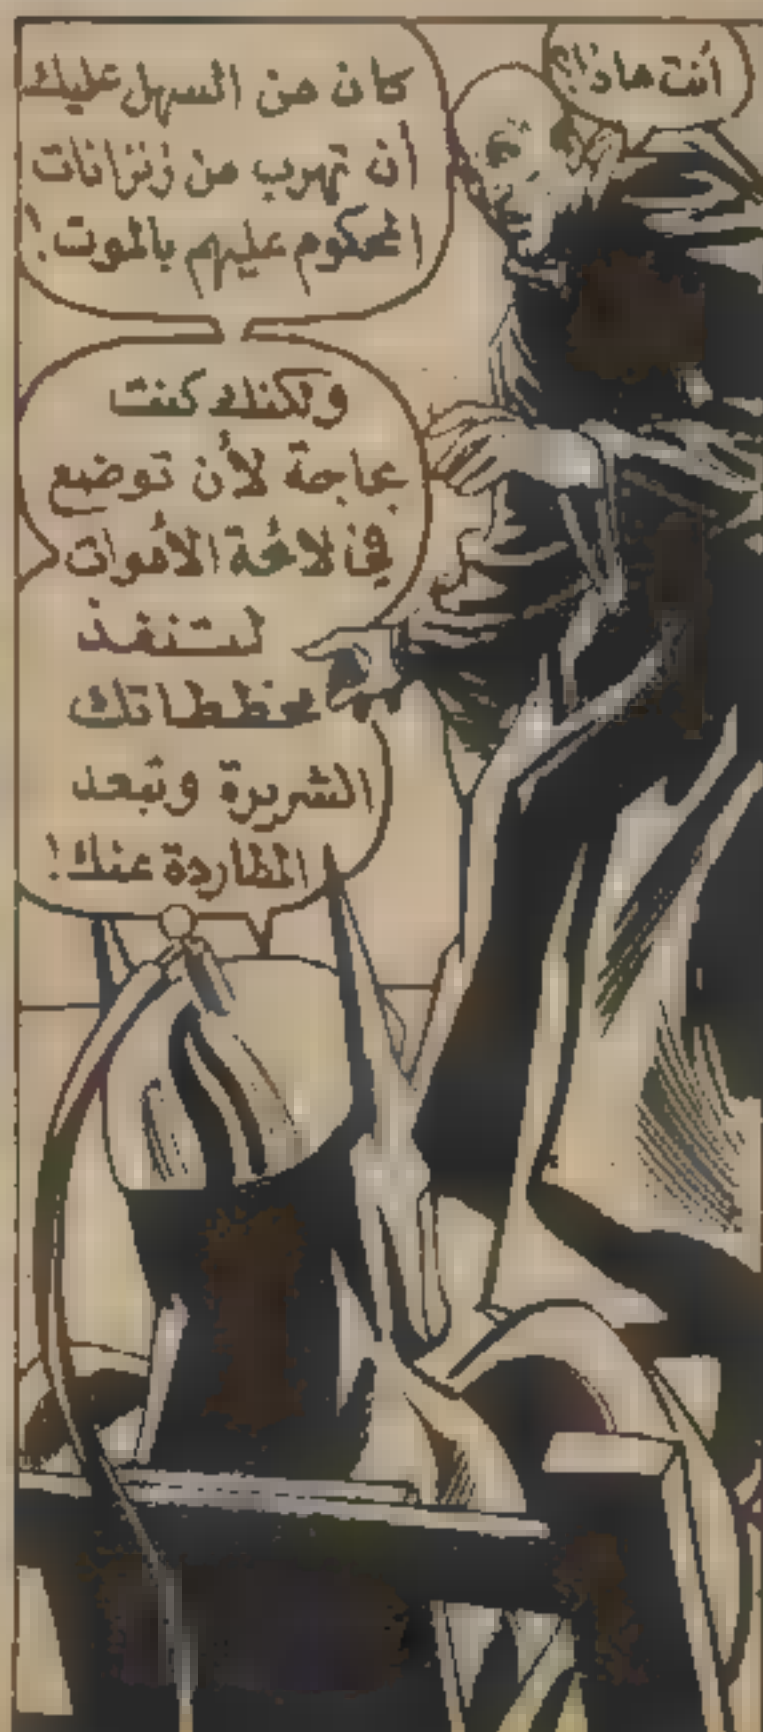 أنت ماذا؟!
كان من السهل عليك
أن تهرب من زنزانات
المحكوم عليهم بالموت!
ولكنك كنت
بحاجة لأن توضع
في لائحة الأموات
لتنفذ
مخططاتك
الشريرة وتبعد
المطاردة عنك!